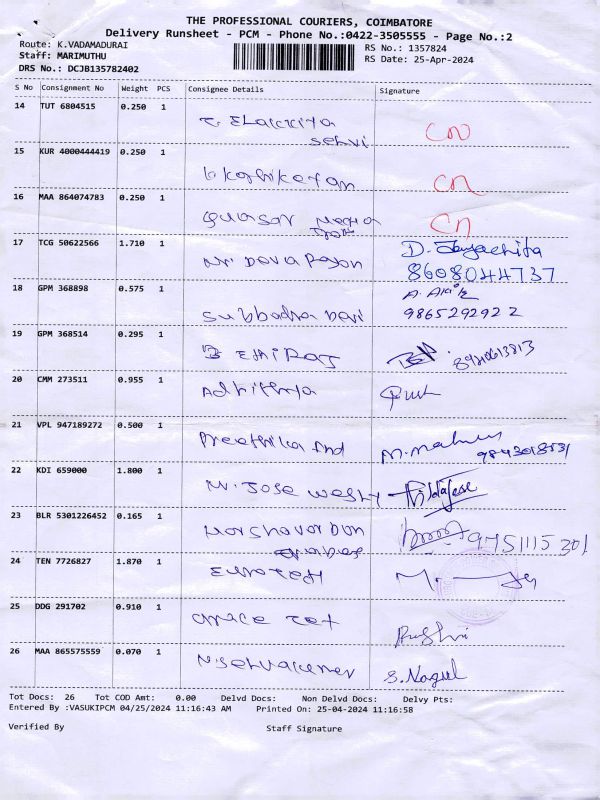 THE PROFESSIONAL COURIERS, COIMBATORE
Delivery Runsheet - PCM - Phone No.:0422-3505555 - Page No.:2
Route: K.VADAMADURAI
RS No.: 1357824
Staff: MARIMUTHU
RS Date: 25-Apr-2024
DRS No.: DCJB135782402
S No Consignment No Weight PCS Consignee Details Signature
14 TUT 6804515 0.250 1
selvi CN
15 KUR 4000444419 0.250 1
CN
16 MAA 864074783 0.250 1
Quasar Media CN
17 TCG 50622566 1.710 1 D.
8608044737
18 GPM 368898 0.575 1 A.
Subbadra Devi 9865292922
19 GPM 368514 0.295 1
B Ethiraj 8940613813
20 CMM 273511 0.955 1
Adhithya
21 VPL 947189272 0.500 1
Preethika And M. 9843018531
22 KDI 659000 1.800 1
Jose
23 BLR 5301226452 0.165 1
Harshavardun 9751115301
24 TEN 7726827 1.870 1
Eurotech
25 DDG 291702 0.910 1
Grace
26 MAA 865575559 0.070 1
N.Selvakumar S.Nagul
Tot Docs: 26 Tot COD Amt: 0.00 Delvd Docs: Non Delvd Docs: Delvy Pts:
Entered By :VASUKIPCM 04/25/2024 11:16:43 AM Printed On: 25-04-2024 11:16:58
Verified By Staff Signature